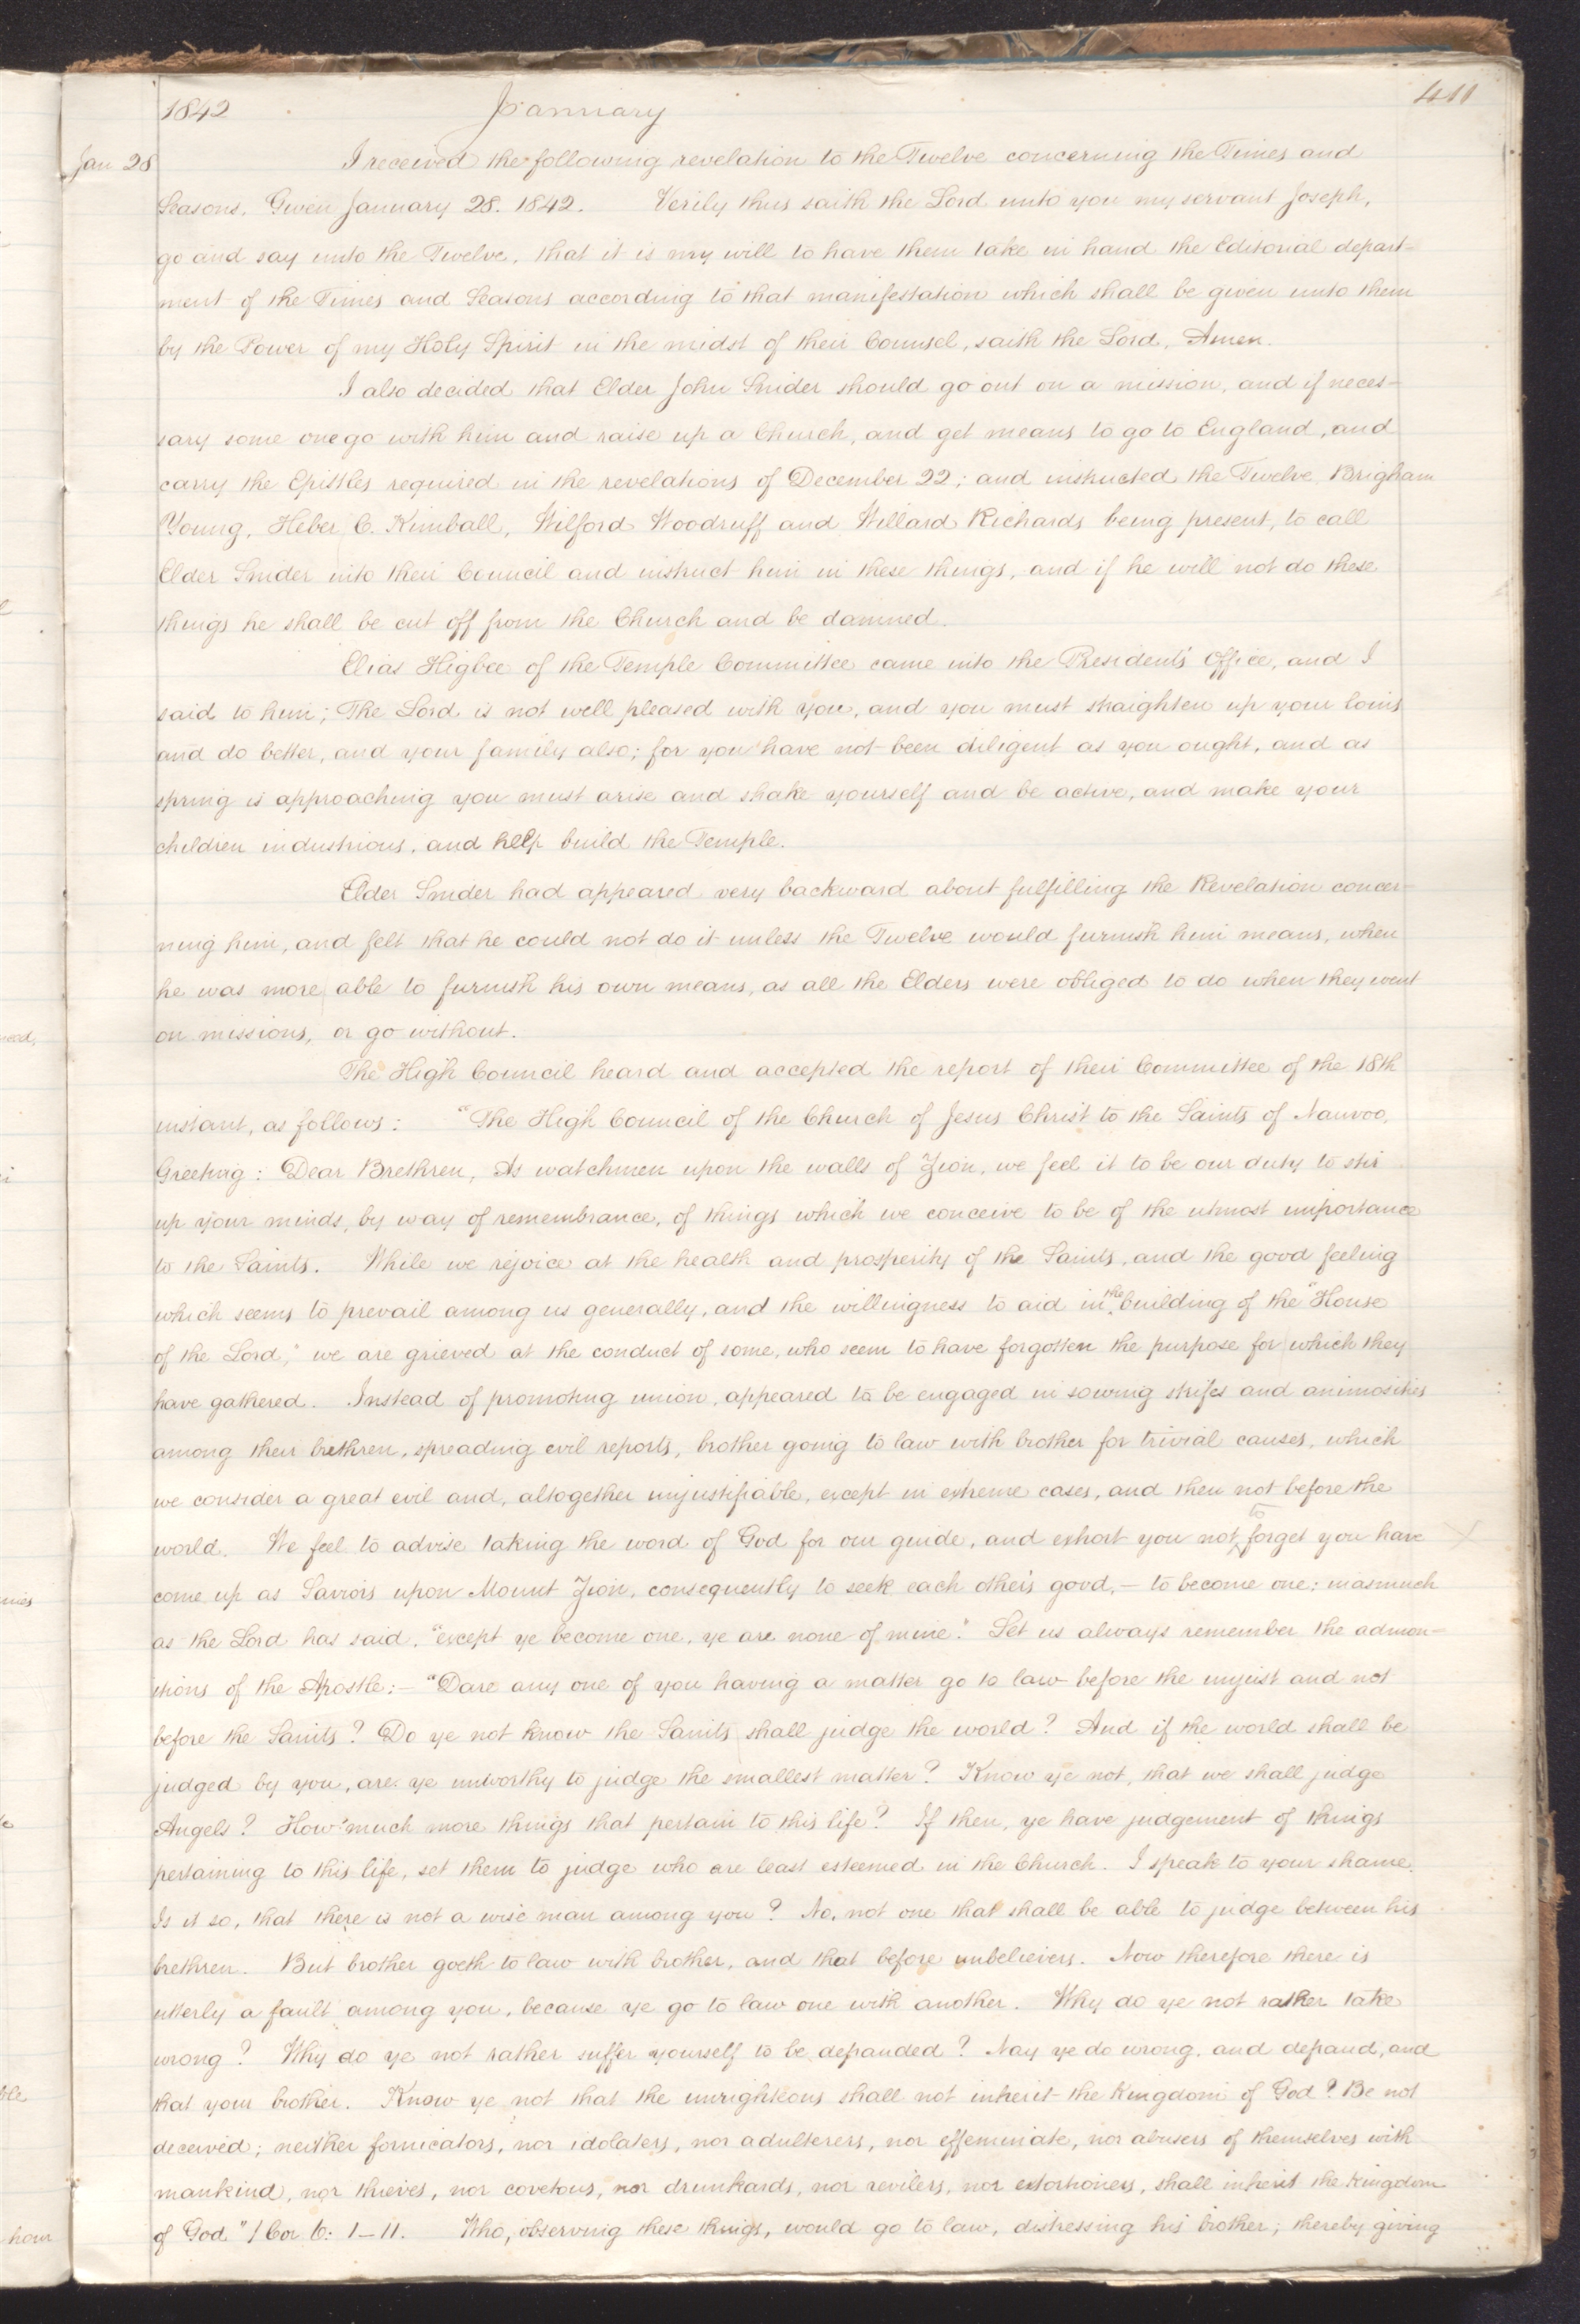 1842 January 411
Jan 28 I received the following revelation to the Twelve concerning the Times and
Seasons, Given January 28. 1842. Verily thus saith the Lord unto you my servant Joseph,
go and say unto the Twelve, that it is my will to have them take in hand the Editorial depart-
ment of the Times and Seasons according to that manifestation which shall be given unto them
by the Power of my Holy Spirit in the midst of their Counsel, saith the Lord, Amen.
I also decided that Elder John Snider should go out on a mission, and if neces-
sary some one go with him and raise up a Church, and get means to go to England, and
carry the Epistles required in the revelations of December 22; and instructed the Twelve, Brigham
Young, Heber C. Kimball, Wilford Woodruff and Willard Richards being present, to call
Elder Snider into their Council and instruct him in these things, and if he will not do these
things he shall be cut off from the Church and be damned.
Elias Higbee of the Temple Committee came into the President's Office, and I
said to him; The Lord is not well pleased with you, and you must straighten up your loins
and do better, and your family also; for you have not been diligent as you ought, and as
spring is approaching you must arise and shake yourself and be active, and make your
children industrious, and help build the Temple.
Elder Snider had appeared very backward about fulfilling the Revelation concer-
ning him, and felt that he could not do it unless the Twelve would furnish him means, when
he was more able to furnish his own means, as all the Elders were obliged to do when they went
on missions, or go without.
The High Council heard and accepted the report of their Committee of the 18th
instant, as follows: "The High Council of the Church of Jesus Christ to the Saints of Nauvoo,
Greeting: Dear Brethren, As watchmen upon the walls of Zion, we feel it to be our duty to stir
up your minds, by way of remembrance, of things which we conceive to be of the utmost importance
to the Saints. While we rejoice at the health and prosperity of the Saints, and the good feeling
which seems to prevail among us generally, and the willingness to aid in the building of the "House
of the Lord," we are grieved at the conduct of some, who seem to have forgotten the purpose for which they
have gathered. Instead of promoting union, appeared to be engaged in sowing strifes and animosities
among their brethren, spreading evil reports, brother going to law with brother for trivial causes, which
we consider a great evil and, altogether unjustifiable, except in extreme cases, and then not before the
world. We feel to advise taking the word of God for our guide, and exhort you not to forget you have
come up as Saviors upon Mount Zion, consequently to seek each other's good,— to become one; inasmuch
as the Lord has said, "except ye become one, ye are none of mine." Let us always remember the admon-
itions of the Apostle:— "Dare any one of you having a matter go to law before the unjust and not
before the Saints? Do ye not know the Saints shall judge the world? And if the world shall be
judged by you, are ye unworthy to judge the smallest matter? Know ye not, that we shall judge
Angels? How much more things that pertain to this life? If then, ye have judgement of things
pertaining to this life, set them to judge who are least esteemed in the Church. I speak to your shame.
Is it so, that there is not a wise man among you? No, not one that shall be able to judge between his
brethren. But brother goeth to law with brother, and that before unbelievers. Now therefore there is
utterly a fault among you, because ye go to law one with another. Why do ye not rather take
wrong? Why do ye not rather suffer yourself to be defrauded? Nay ye do wrong, and defraud, and
that your brother. Know ye not that the unrighteous shall not inherit the Kingdom of God? Be not
deceived; neither fornicators, nor idolaters, nor adulterers, nor effeminate, nor abusers of themselves with
mankind, nor thieves, nor covetous, nor drunkards, nor revilers, nor extortioners, shall inherit the Kingdom
of God" 1 Cor 6: 1–11. Who, observing these things, would go to law, distressing his brother; thereby giving
hour